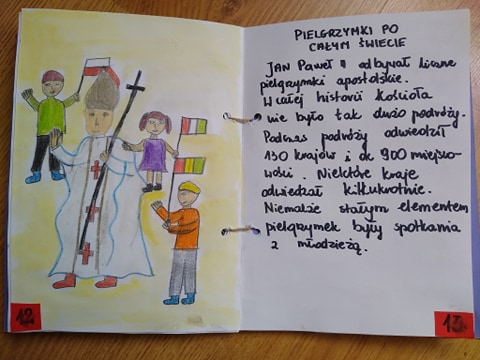 PIELGRZYMKI PO
CAŁYM ŚWIECIE
JAN Paweł II odbywał liczne
pielgrzymki apostolskie.
W całej historii Kościoła
nie było tak dużo podróży.
Podczas podróży odwiedził
130 krajów i ok 900 miejsco-
wości. Niektóre kraje
odwiedzał kilkukrotnie.
Niemalże stałym elementem
pielgrzymek były spotkania
z młodzieżą.
12
13